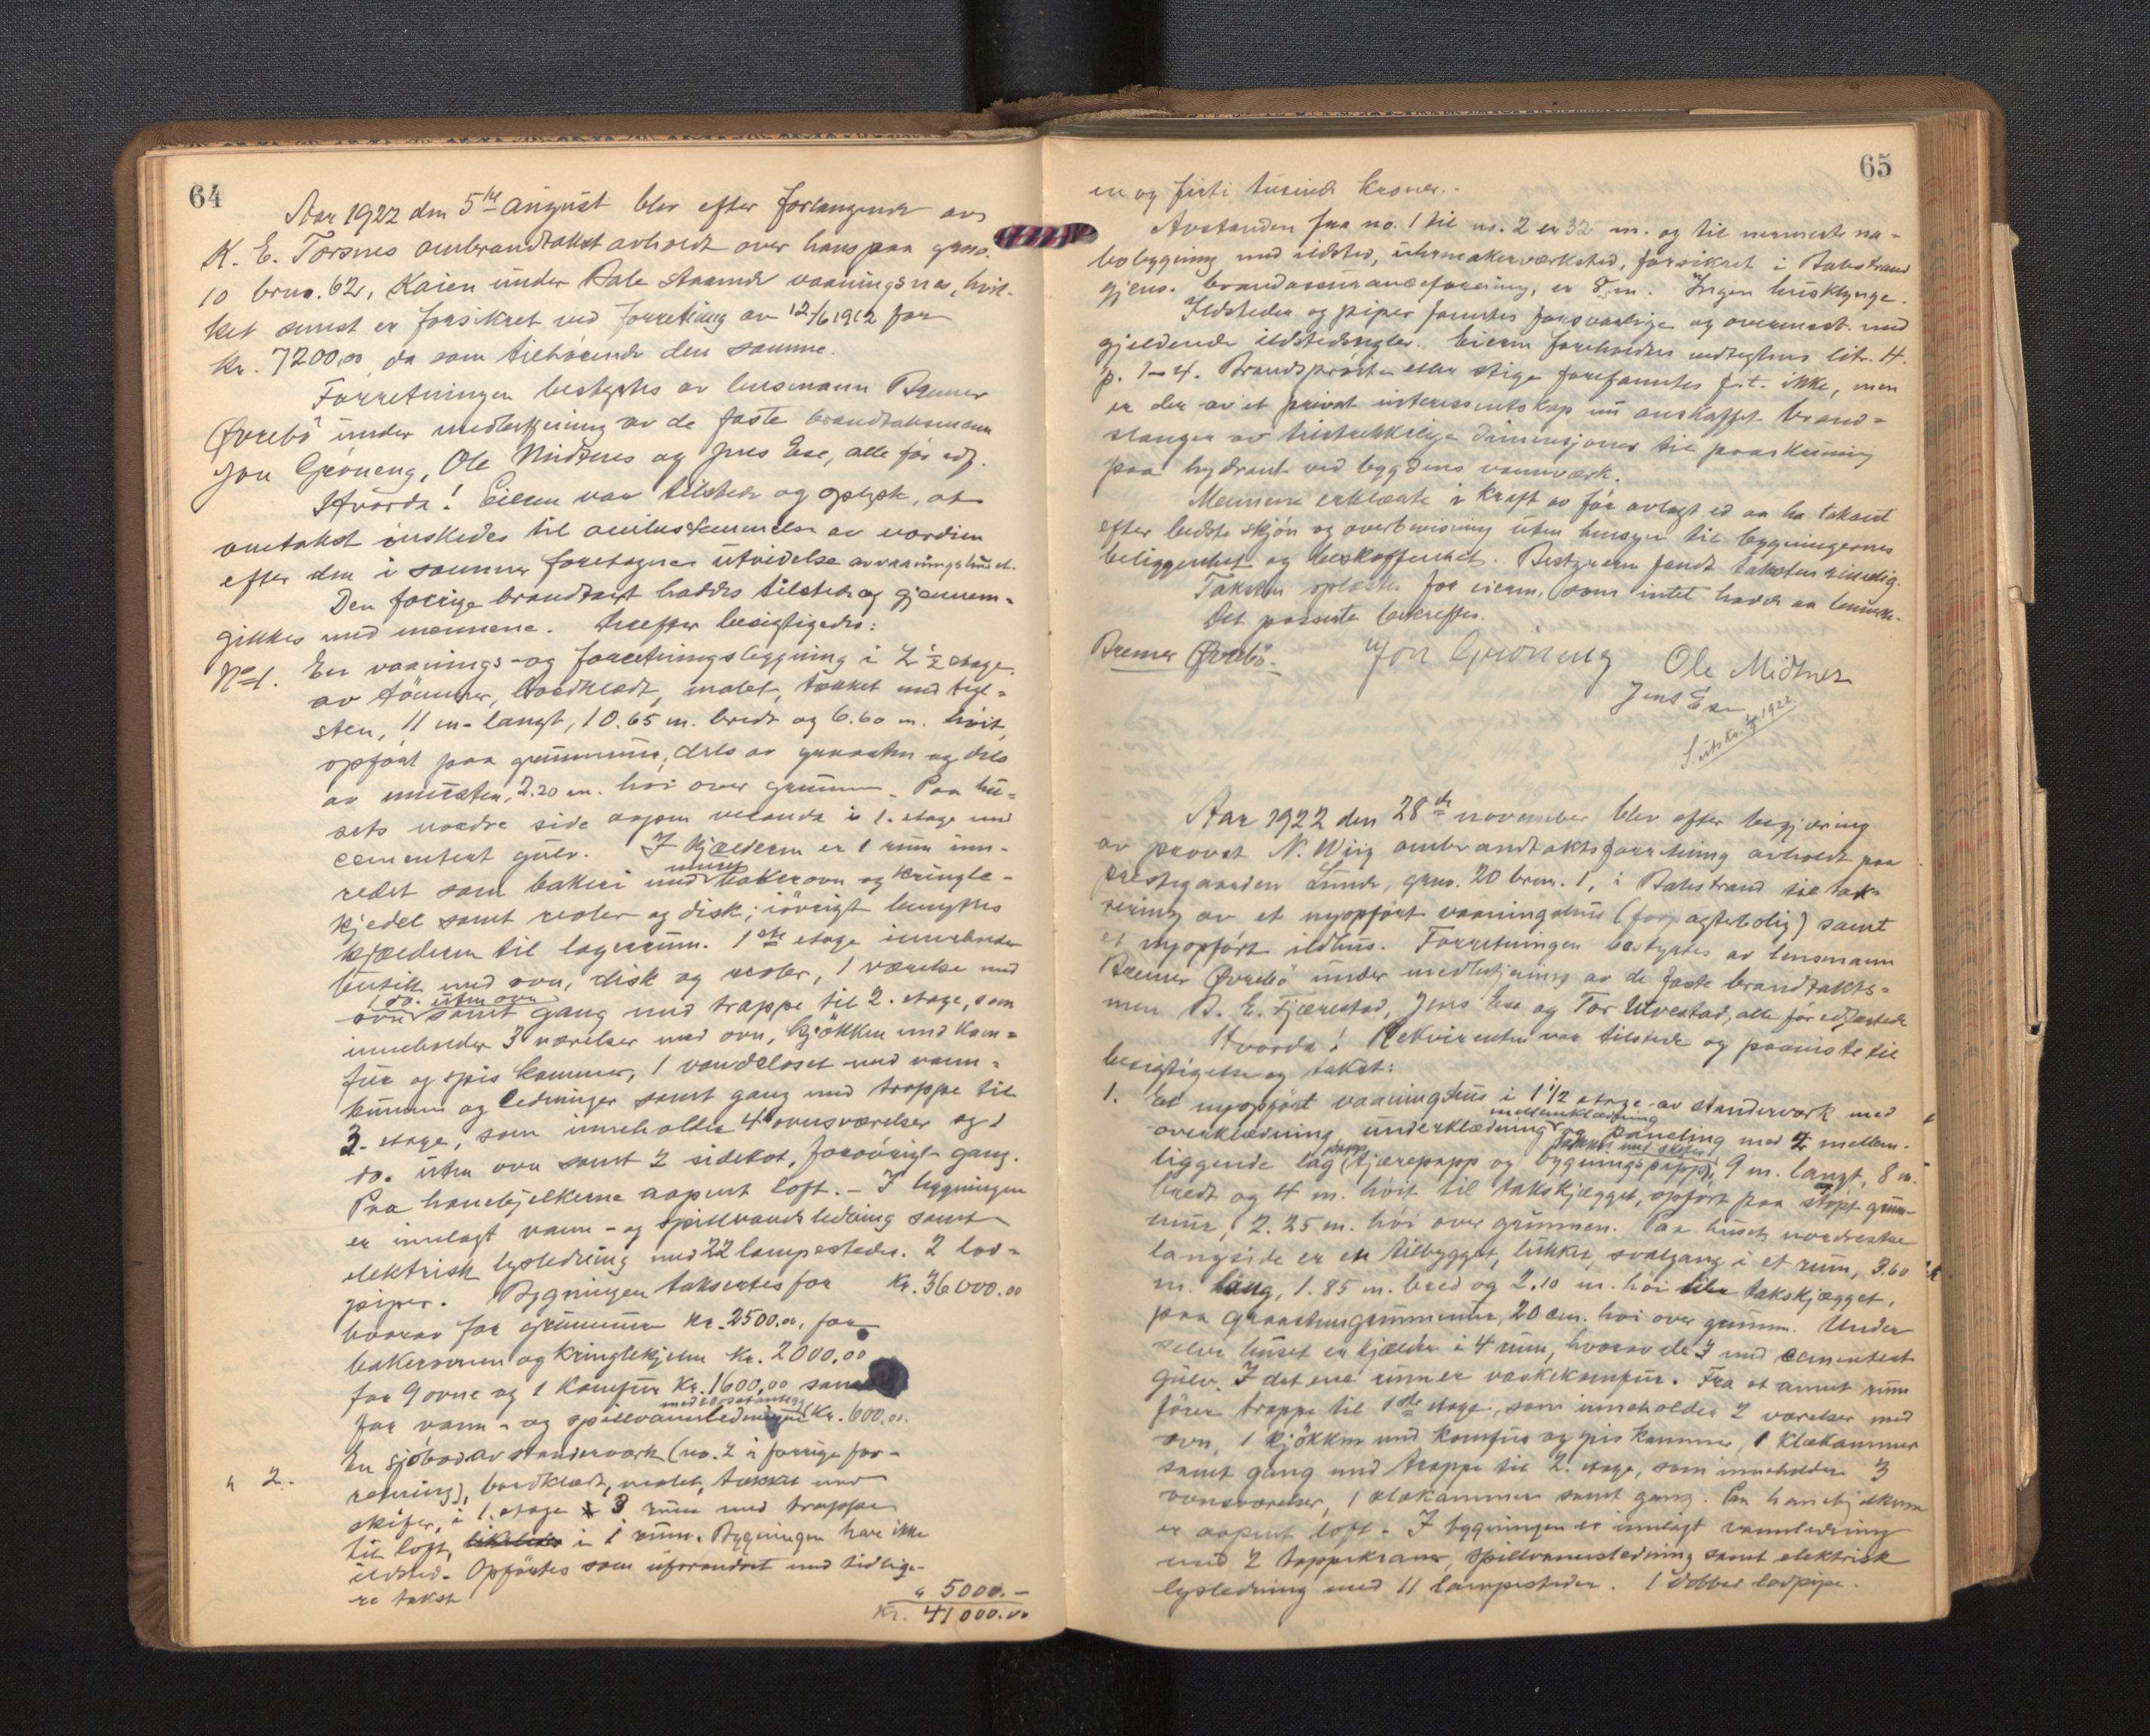 64
Aar 1922 den 5te august blev efter forlangende av
K. E. Torsnes ombrandtakst avholdt over hans paa gnr.
10 brnr. 62, Kaien under Dale staaende vaaningshus, hvil-
ket senest er forsikret ved forretning av 12/6 1912 for
kr. 7200,00, da som tilhörende den samme.
Forretningen bestyrtes av lensmann Bremer
Øvrebö under medbetjening av de faste brandtaksmenn
Jon Gröneng, Ole Midtnes og Jens Ese, alle för edf.
Hvorda! Eieren var tilstede og oplyste, at
omtakst önskedes til avbestemmelse av værdien
efter den i sommer foretagne utvidelse av vaaningshuset.
Den forrige brandtakst haddes tilstede og gjennem-
gikkes med mennene. Derefter besigtigedes:
No 1. En vaanings- og forretningsbygning i 2 1/2 etage
av tömmer, bordklædt, malet, tækket med tegl-
sten, 11 m. langt, 10.65 m. bredt og 6.60 m. höit,
opfört paa grunnmur, dels av graasten og dels
av mursten, 2.20 m. höi over grunnen. Paa hu-
sets nordre side aapen veranda i 1. etage med
cementert gulv. I kjælderen er 1 rum inn-
redet som bakeri med muret bakerovn og kringle-
kjedel samt reoler og disk; iövrigt benyttes
kjælderen til lagerrum. 1ste etage inneholder
butik med ovn, disk og reoler, 1 værelse med
ovn 1 do. uten ovn samt gang med trappe til 2. etage, som
inneholder 3 værelser med ovn, kjökken med kom-
fur og spiskammer, 1 vandcloset med vann-
kummer og ledninger samt gang med trappe til
3. etage, som inneholder 4 ovnsværelser og 1
do. uten ovn samt 2 sidekot, foroövrigt gang.
Paa hanebjelkerne aapent loft. - I bygningen
er innlagt vann- og spillvandsledning samt
elektrisk lysledning med 22 lampesteder. 2 lod-
piper. Bygningen takseres for kr. 36000.00
hvorav for grunnmur kr. 2500.00, for
bakerovnen og kringlekjelen kr. 2000,00
for 9 ovne og 1 komfur kr. 1600,00 samt
for vann- og spillvannsledningen kr. 600.00.
" 2. En sjöbod av standerværk (no. 2 i forrige for-
retning), bordklædt, malet, tækket med
skifer, i 1. etage 3 rum med trappe
til loft, i 1 rum. Bygningen har ikke
ildsted. Opförtes som uforandret med tidlige-
re takst " 5000.-
Kr. 41000.00
65
en og firti tusind kroner.-
Avstanden fra no. 1 til no. 2 er 32 m. og til nærmeste na-
bobygning med ildsted, uhrmakerværksted, forsikret i Balestrand
gjens. brandassuranceforening, er 8 m. Ingen husklynge.
Ildsteder og piper fandtes forsvarlige og overensst. med
gjeldende ildstedsregler. Eieren foreholdtes vedtegtens litr. H.
p. 1-4. Brandspröite eller stige forefandtes f.t. ikke, men
er der av et privat interessentskap nu anskaffet brand-
slanger av tilstrekkelige dimensjoner til paaskruing
paa hydrant ved bygdens vannværk.
Mennene erklærte i kraft av för avlagt ed aa ha taksert
efter bedste skjön og overbevisning uten hensyn til bygningernes
beliggenhet og beskaffenhet. Bestyreren fandt taksten rimelig.
Taksten oplæstes for eieren, som intet hadde aa bemerke.
Det passerte bekreftes.
Bremer Øvrebö. Jon Gröneng Ole Midtnes
Jens Ese
Aar 1922 den 28de november blev efter begjæring
av provst N. Wiig ombrandtakstsforretning avholdt paa
prestegaarden Lunde, gnr. 20 brnr. 1, i Balestrand til tak-
sering av et nyopfört vaaningshus (forpagterbolig) samt
et nyopfört ildhus. Forretningen bestyrtes av lensmann
Bremer Øvrebö under medbetjening av de faste brandtakts-
men B. E. Fjærestad, Jens Ese og Tor Utvestad, alle för edfæstede
Hvorda! Rekvirenten var tilstede og paaviste til
besigtigelse og takst:
1. Et nyopfört vaaningshus i 1 1/2 etage av standerværk med
overklædning, underklædning mellemklædning og paneling med 2 mellem-
liggende lag papp (tjærepapp og bygningspapp), tækket med skifer 9 m. langt, 8 m.
bredt og 4 m. höit til takskjægget, opfört paa stöpt grunn-
mur, 2.25 m. höi over grunnen. Paa husets nordvestre
langside er en tilbygget, lukket svalgang i et rum, 3.60
m. lang, 1.85 m. bred og 2.10 m. höi til takskjægget,
paa graastensgrunnmur, 20 cm. höi over grunnen. Under
selve huset er kjælder i 4 rum, hvorav de 3 med cementert
gulv. I det ene rum er vaskekomfur. Fra et annet rum
förer trappe til 1ste etage, som inneholder 2 værelser med
ovn, 1 kjökken med komfur og spiskammer, 1 klækammer
samt gang med trappe til 2. etage, som inneholder 3
ovnsværelser, 1 klækammer samt gang. Paa hanebjelkerne
er aapent loft. - I bygningen er innlagt vannledning
med 2 tappekraner, spillvannsledning samt elektrisk
lysledning med 11 lampesteder. 1 dobbel lodpipe.